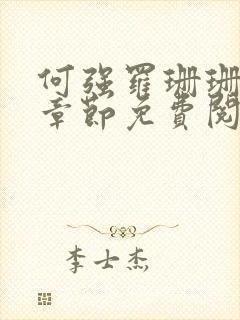 何强羅珊珊
章節免費閱
李士杰